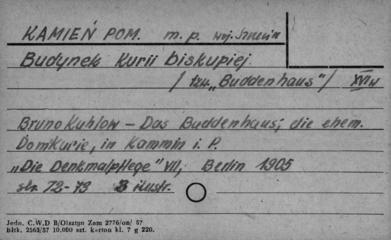 KAMIEŃ POM. m. p. woj. Szczecin
Budynek Kurii biskupiej
/ tzw. „Buddenhaus" / XVIw
Bruno Kuhlow – Das Buddenhaus, die ehem.
Domkurie, in Kammin i. P.
„Die Denkmalpflege" VII, Berlin 1905
str. 72-73 3 ilustr.
Jedn. C.W.D B/Olsztyn Zam 2776/on/ 67
Bltk. 2563/57 10.000 szt. karton kl. 7 g 220.